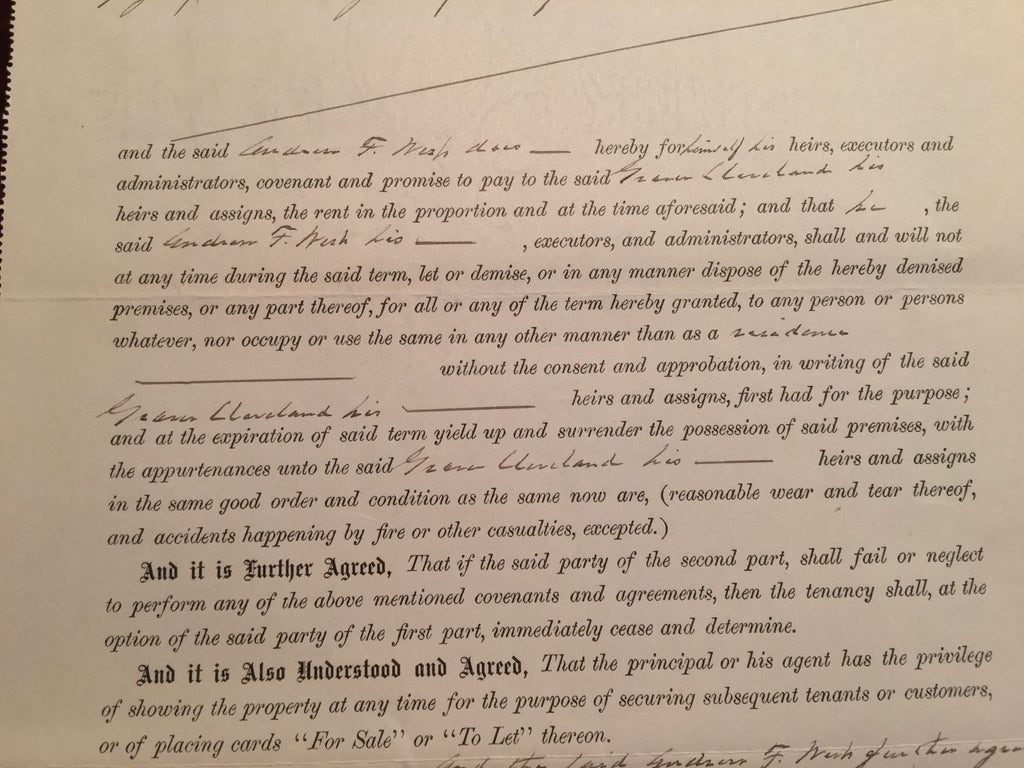 and the said Andrew F. Wesh does — hereby for himself his heirs, executors and
administrators, covenant and promise to pay to the said Grover Cleveland his
heirs and assigns, the rent in the proportion and at the time aforesaid; and that he , the
said Andrew F. Wesh his — , executors, and administrators, shall and will not
at any time during the said term, let or demise, or in any manner dispose of the hereby demised
premises, or any part thereof, for all or any of the term hereby granted, to any person or persons
whatever, nor occupy or use the same in any other manner than as a residence
without the consent and approbation, in writing of the said
Grover Cleveland his — heirs and assigns, first had for the purpose;
and at the expiration of said term yield up and surrender the possession of said premises, with
the appurtenances unto the said Grover Cleveland his — heirs and assigns
in the same good order and condition as the same now are, (reasonable wear and tear thereof,
and accidents happening by fire or other casualties, excepted.)
And it is Further Agreed, That if the said party of the second part, shall fail or neglect
to perform any of the above mentioned covenants and agreements, then the tenancy shall, at the
option of the said party of the first part, immediately cease and determine.
And it is Also Understood and Agreed, That the principal or his agent has the privilege
of showing the property at any time for the purpose of securing subsequent tenants or customers,
or of placing cards "For Sale" or "To Let" thereon.
And the said Andrew F. Wesh further agre